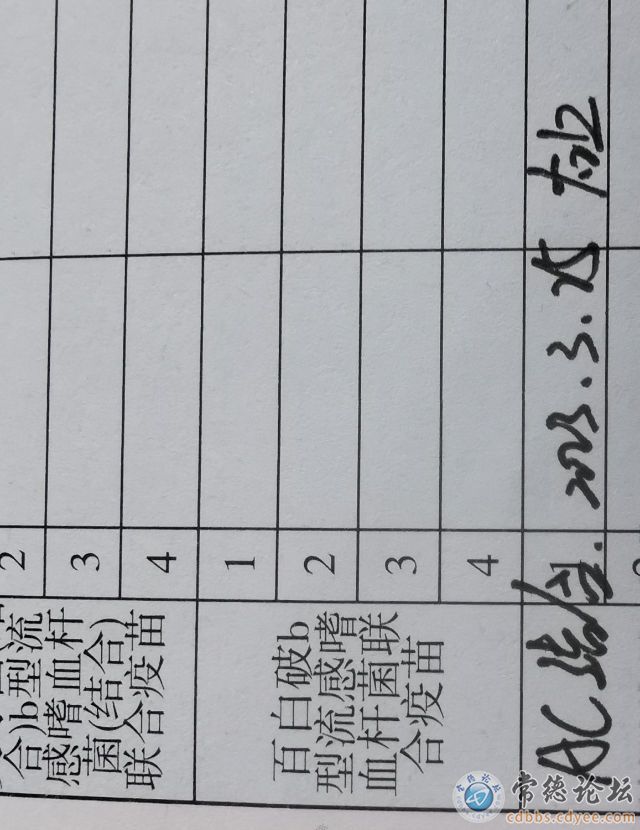 合)b型流
感嗜血杆
菌(结合)
联合疫苗
2
3
4
百白破b
型流感嗜
血杆菌联
合疫苗
1
2
3
4
AC结合. 2023.3.25
常德论坛
cdbbs.cdyee.com